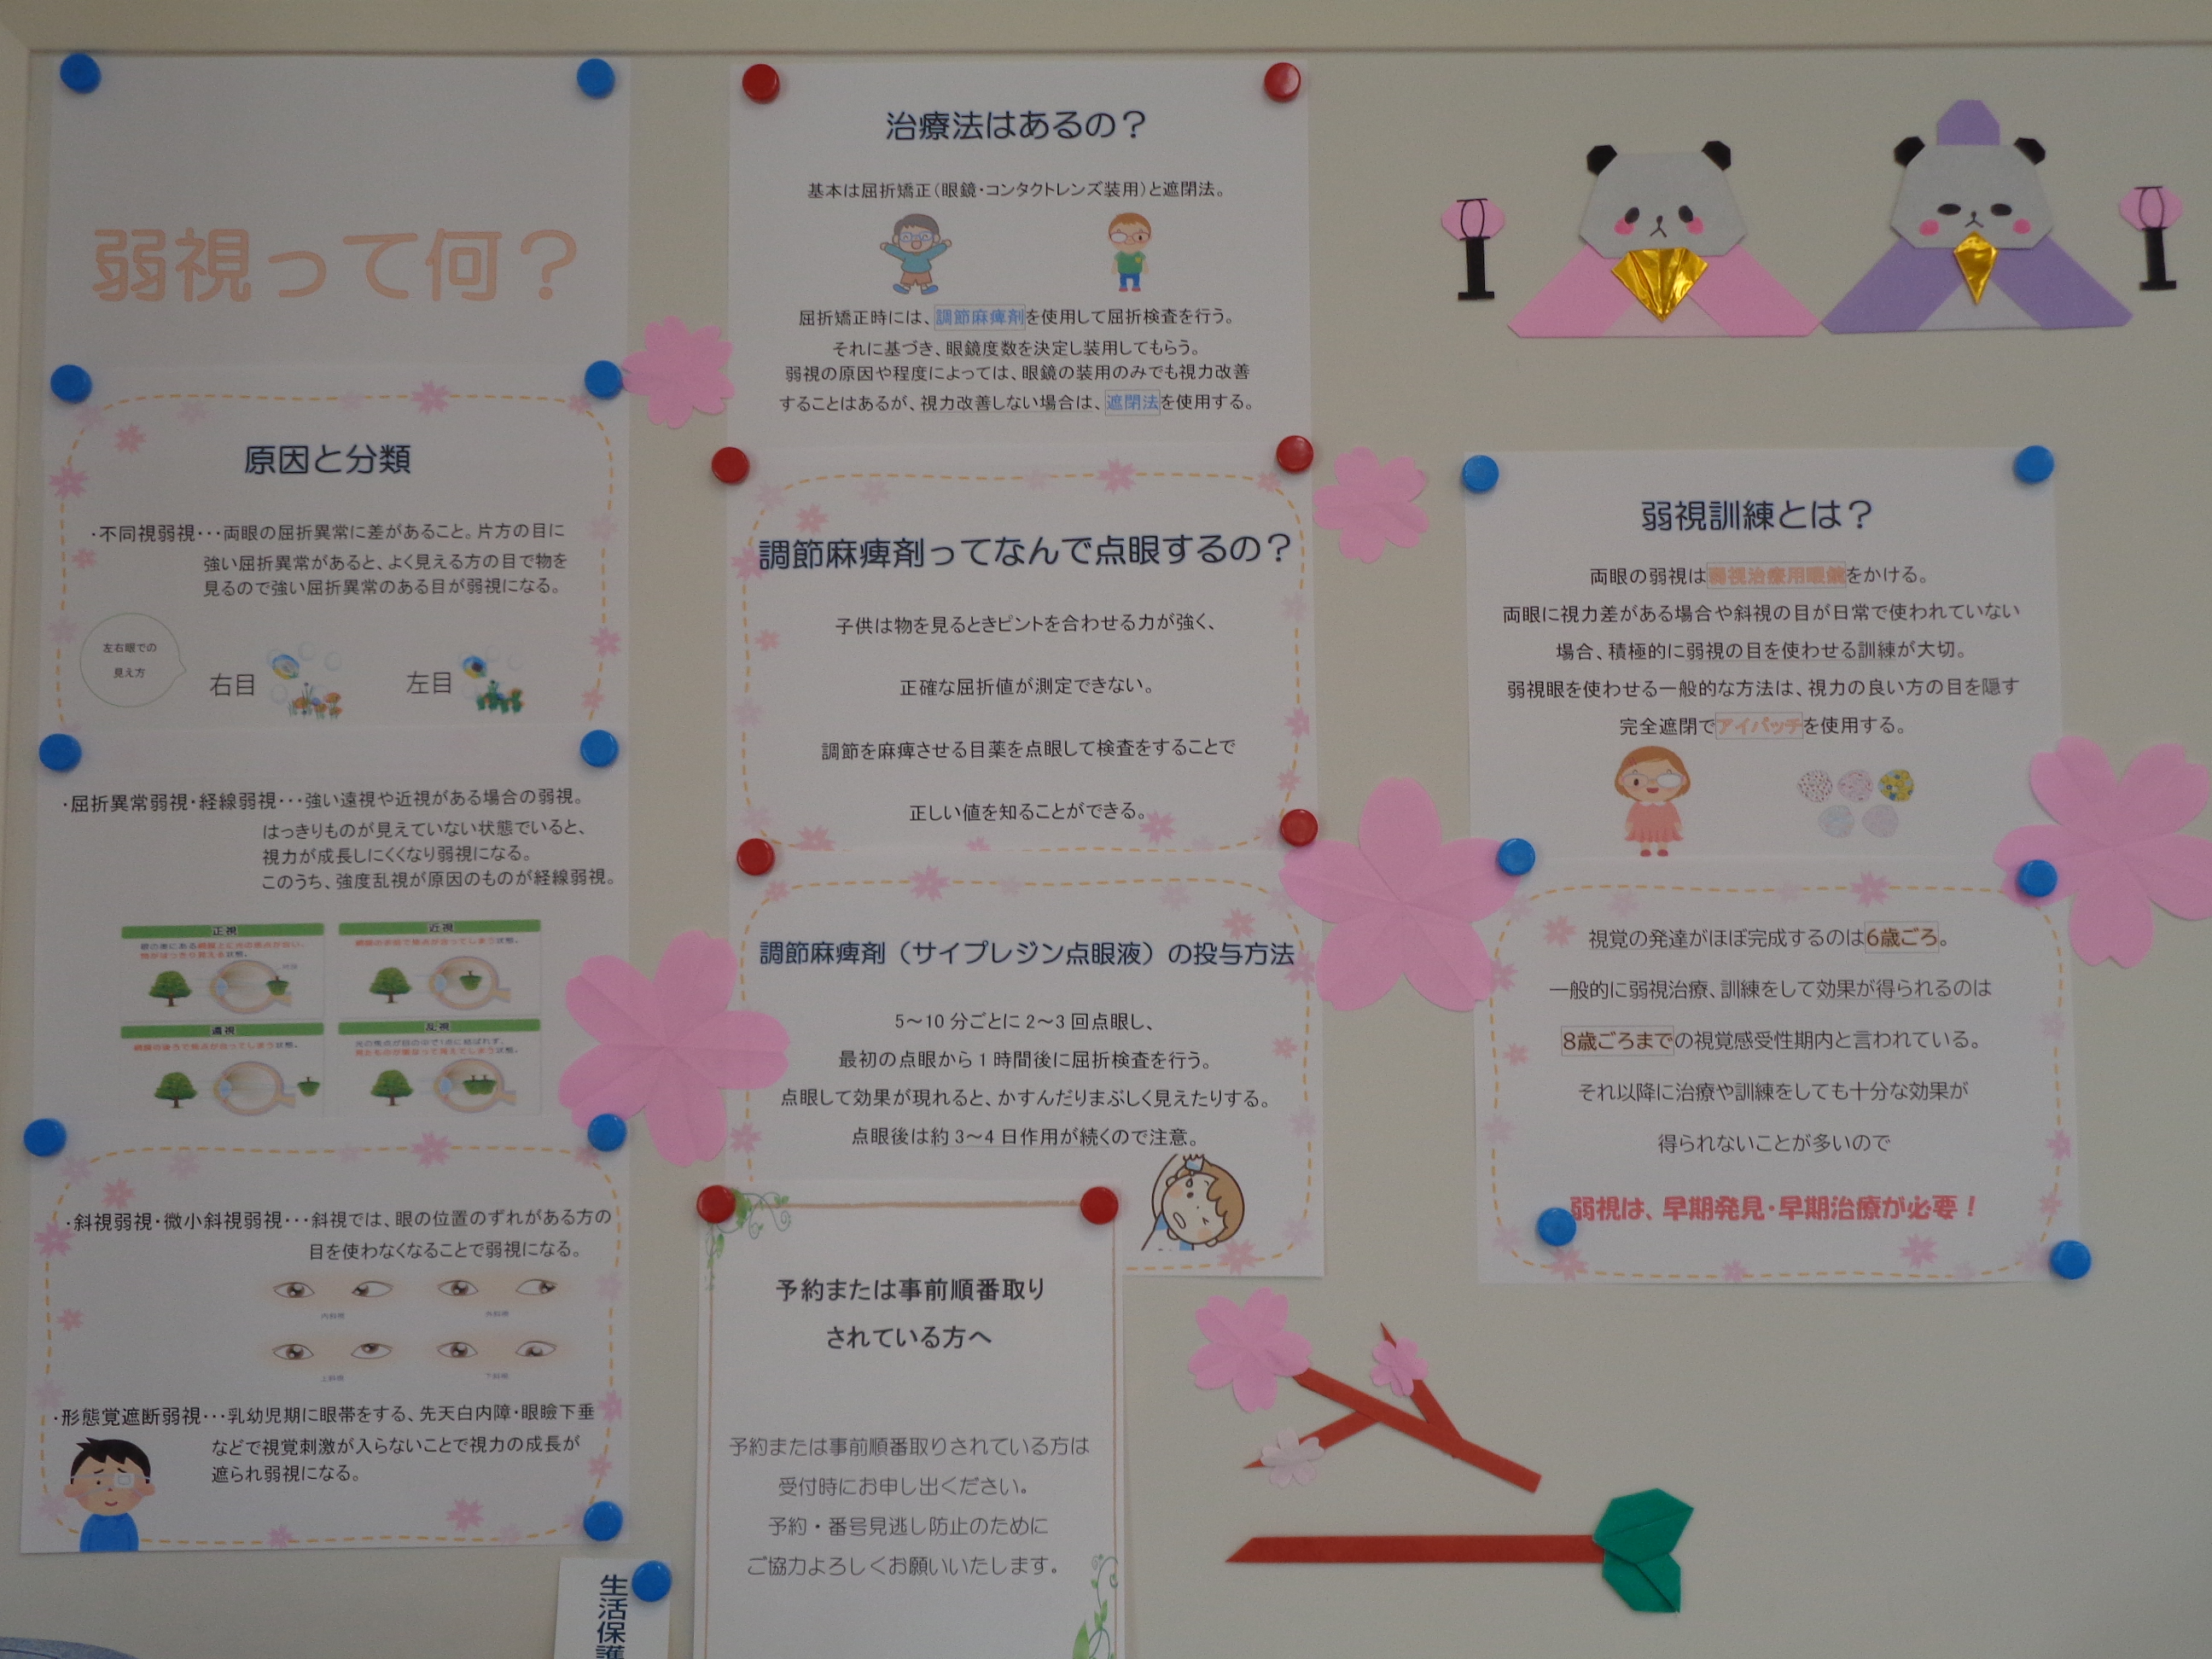 弱視って何？
原因と分類
・不同視弱視・・・両眼の屈折異常に差があること。片方の目に
強い屈折異常があると、よく見える方の目で物を
見るので強い屈折異常のある目が弱視になる。
左右眼での
見え方
右目
左目
・屈折異常弱視・経線弱視・・・強い遠視や近視がある場合の弱視。
はっきりものが見えていない状態でいると、
視力が成長しにくくなり弱視になる。
このうち、強度乱視が原因のものが経線弱視。
正視
眼の奥にある網膜上に光の焦点が合い、
物がはっきり見える状態。
近視
網膜の手前で焦点が合ってしまう状態。
遠視
網膜の後ろで焦点が合ってしまう状態。
乱視
光の焦点が目の中で1点に結ばれず、
見たものが重なって見えてしまう状態。
・斜視弱視・微小斜視弱視・・・斜視では、眼の位置のずれがある方の
目を使わなくなることで弱視になる。
内斜視
外斜視
上斜視
下斜視
・形態覚遮断弱視・・・乳幼児期に眼帯をする、先天白内障・眼瞼下垂
などで視覚刺激が入らないことで視力の成長が
遮られ弱視になる。
生活保護
治療法はあるの？
基本は屈折矯正（眼鏡・コンタクトレンズ装用）と遮閉法。
屈折矯正時には、調節麻痺剤を使用して屈折検査を行う。
それに基づき、眼鏡度数を決定し装用してもらう。
弱視の原因や程度によっては、眼鏡の装用のみでも視力改善
することはあるが、視力改善しない場合は、遮閉法を使用する。
調節麻痺剤ってなんで点眼するの？
子供は物を見るときピントを合わせる力が強く、
正確な屈折値が測定できない。
調節を麻痺させる目薬を点眼して検査をすることで
正しい値を知ることができる。
調節麻痺剤（サイプレジン点眼液）の投与方法
5～10 分ごとに 2～3 回点眼し、
最初の点眼から 1 時間後に屈折検査を行う。
点眼して効果が現れると、かすんだりまぶしく見えたりする。
点眼後は約 3～4 日作用が続くので注意。
予約または事前順番取り
されている方へ
予約または事前順番取りされている方は
受付時にお申し出ください。
予約・番号見逃し防止のために
ご協力よろしくお願いいたします。
弱視訓練とは？
両眼の弱視は弱視治療用眼鏡をかける。
両眼に視力差がある場合や斜視の目が日常で使われていない
場合、積極的に弱視の目を使わせる訓練が大切。
弱視眼を使わせる一般的な方法は、視力の良い方の目を隠す
完全遮閉でアイパッチを使用する。
視覚の発達がほぼ完成するのは6歳ごろ。
一般的に弱視治療、訓練をして効果が得られるのは
8歳ごろまでの視覚感受性期内と言われている。
それ以降に治療や訓練をしても十分な効果が
得られないことが多いので
弱視は、早期発見・早期治療が必要！